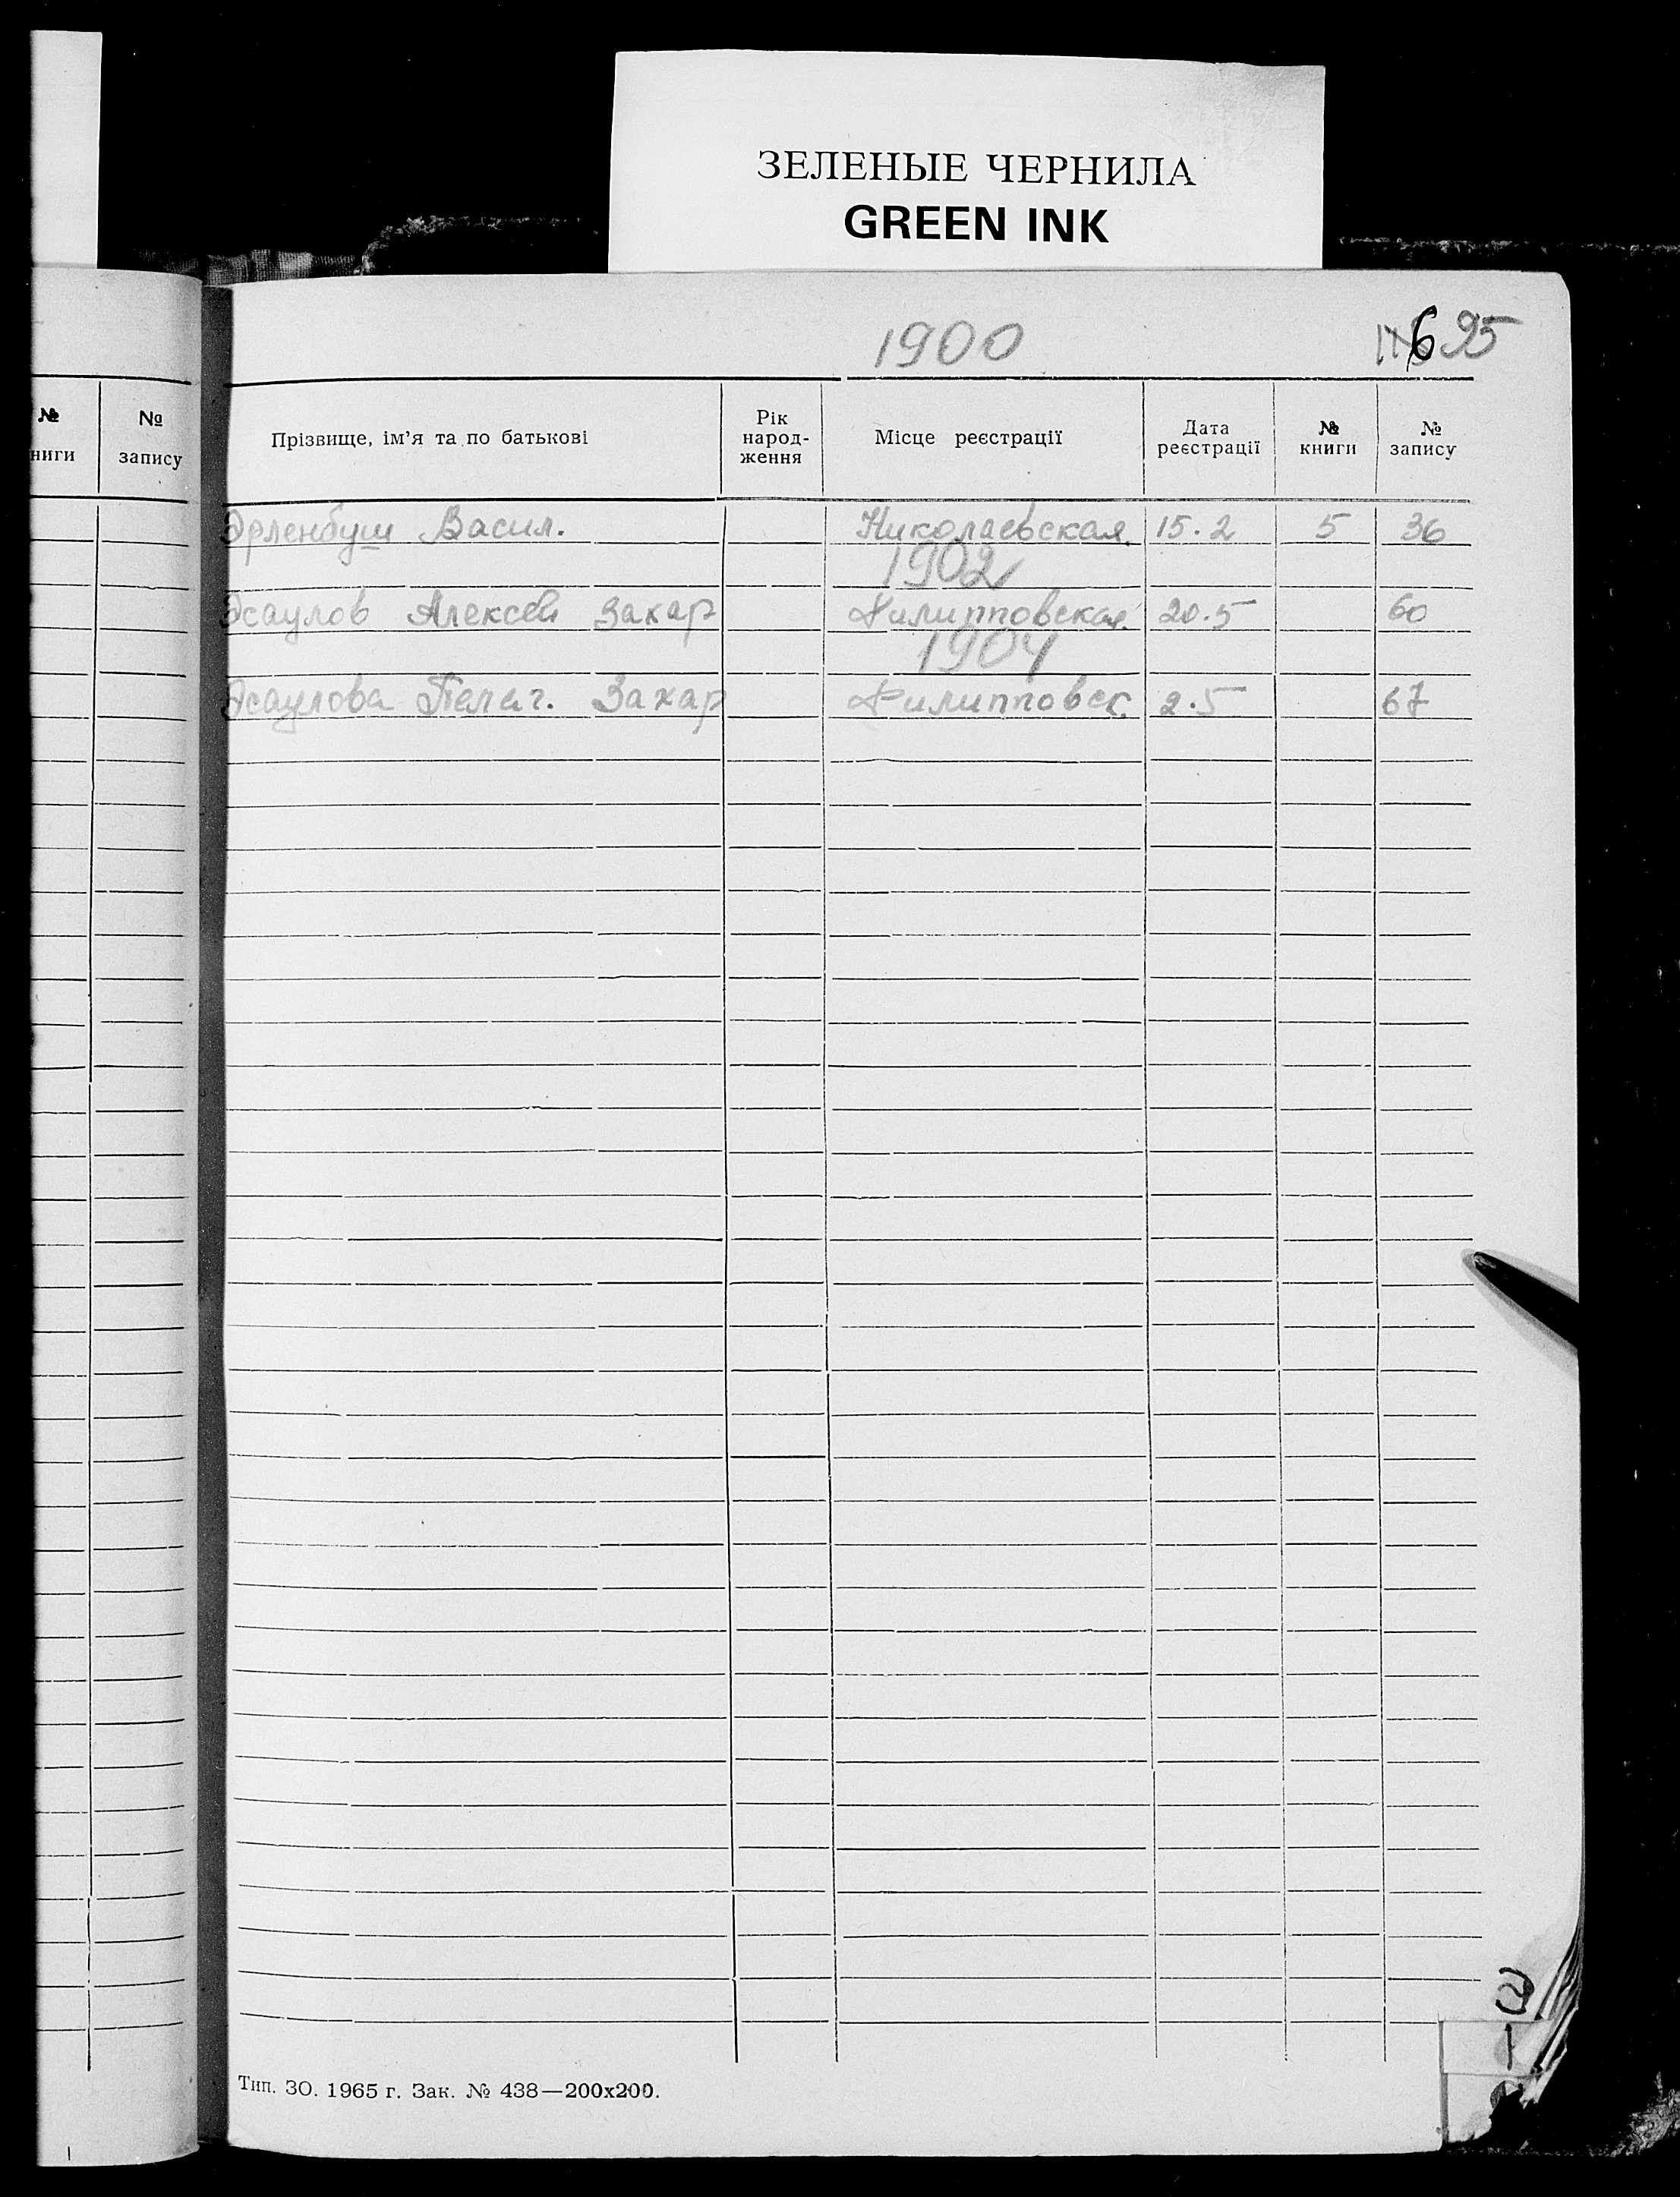 ЗЕЛЕНЫЕ ЧЕРНИЛА
GREEN INK
1900
695
№ ниги
№ запису
Прізвище, ім'я та по батькові
Рік народ- ження
Місце реєстрації
Дата реєстрації
№ книги
№ запису
Эрленбуш Васил. Николаевская 15.2 5 36
1902
Эсаулов Алексей Захар Филипповская 20.5 60
1904
Эсаулова Пелаг. Захар Филипповск. 2.5 67
Тип. ЗО. 1965 г. Зак. № 438—200х200.